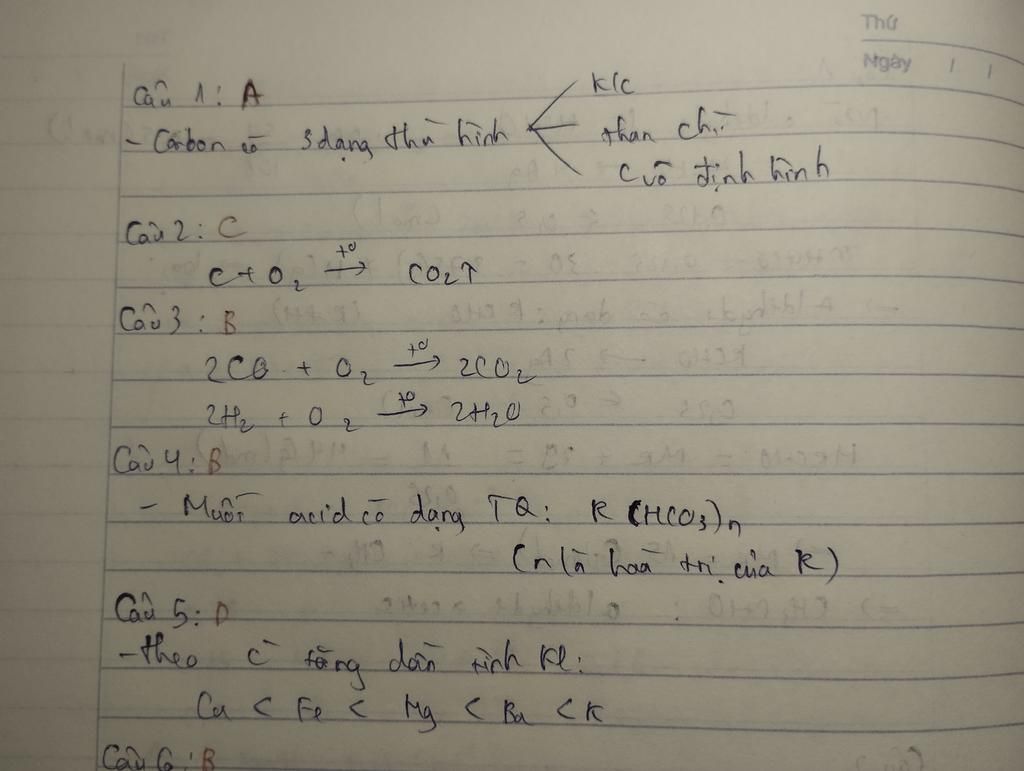 Thứ
Ngày / /
Câu 1: A
- Carbon có 3 dạng thù hình
K/C
than chì
C vô định hình
Câu 2: C
C + O2 →(t°) CO2↑
Câu 3: B
2CO + O2 →(t°) 2CO2
2H2 + O2 →(t°) 2H2O
Câu 4: B
- Muối acid có dạng TQ: R(HCO3)n
(n là hoá trị của R)
Câu 5: D
- theo tăng dần tính Kl:
Cu < Fe < Mg < Ba < K
Câu 6: B